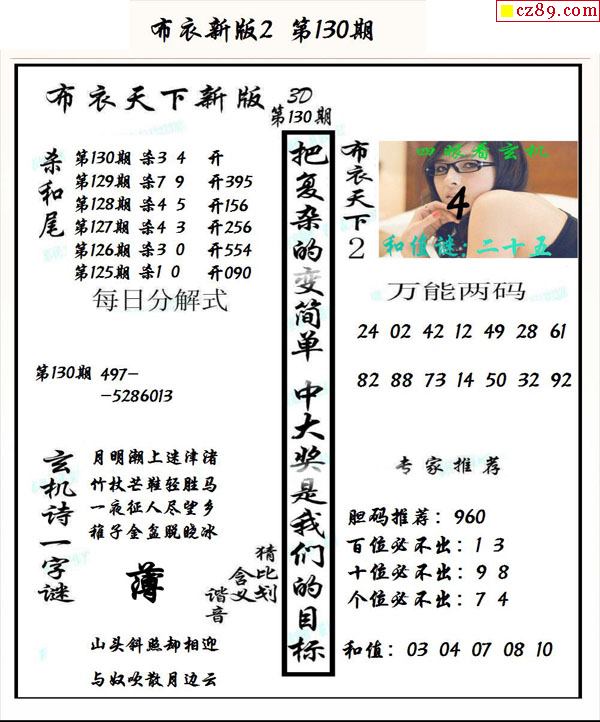 cz89.com
布衣新版2 第130期
布衣天下新版
3D
第130期
杀和尾
第130期 杀3 4 开
第129期 杀7 9 开395
第128期 杀4 5 开156
第127期 杀4 3 开256
第126期 杀3 0 开554
第125期 杀1 0 开090
每日分解式
第130期 497-
-5286013
玄机诗一字谜
月明潮上迷津渚
竹杖芒鞋轻胜马
一夜征人尽望乡
稚子金盆脱晓冰
薄
猜比划
含义
谐音
山头斜照却相迎
与奴吹散月边云
把复杂的变简单 中大奖是我们的目标
布衣天下2
四眼看玄机
4
和值谜:二十五
万能两码
24 02 42 12 49 28 61
82 88 73 14 50 32 92
专家推荐
胆码推荐：960
百位必不出：1 3
十位必不出：9 8
个位必不出：7 4
和值：03 04 07 08 10